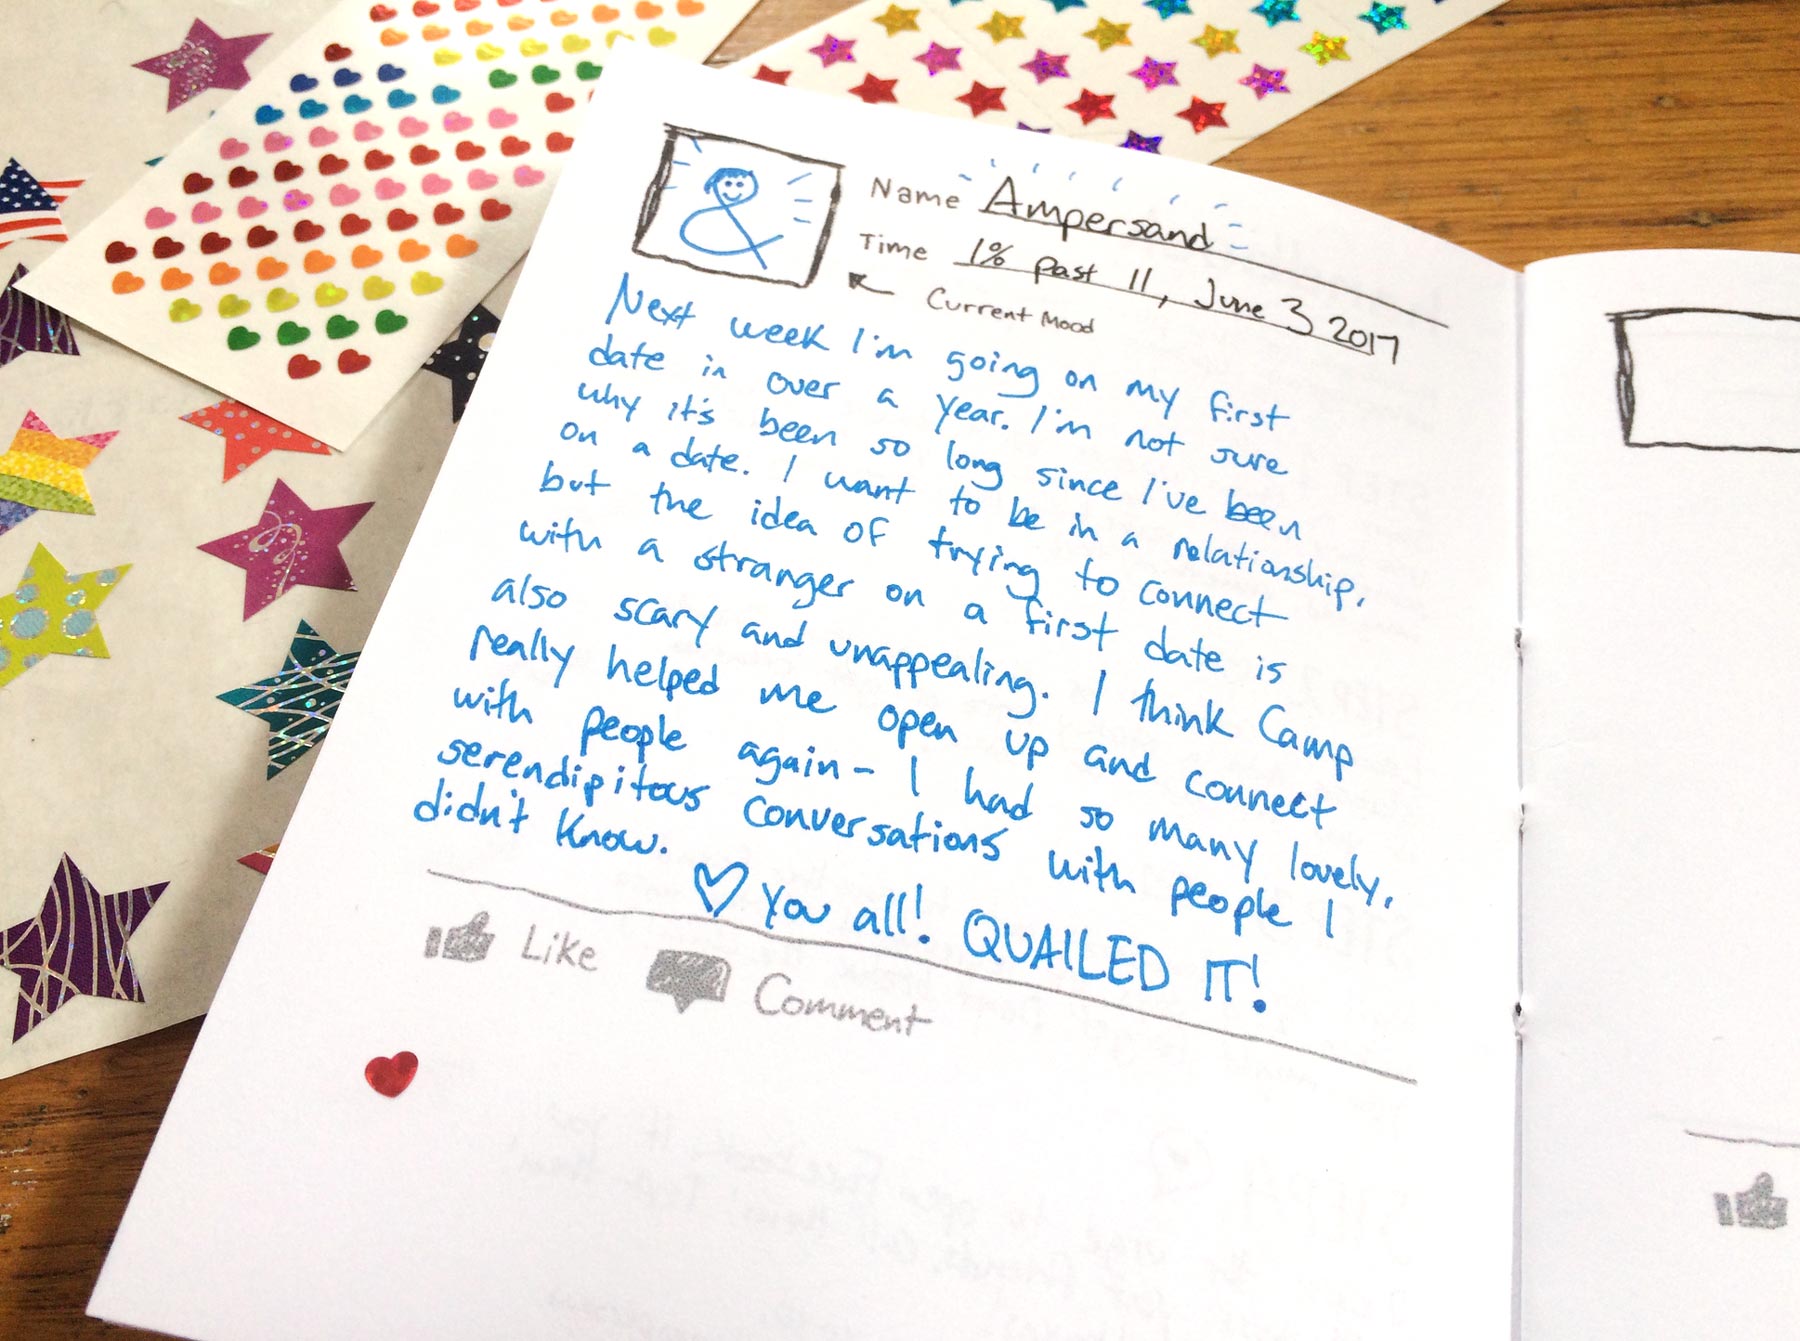 Name Ampersand
Time 1% past 11, June 3 2017
Current Mood
Next week I'm going on my first
date in over a year. I'm not sure
why it's been so long since I've been
on a date. I want to be in a relationship,
but the idea of trying to connect
with a stranger on a first date is
also scary and unappealing. I think Camp
really helped me open up and connect
with people again - I had so many lovely,
serendipitous conversations with people I
didn't know.
♡ You all! QUAILED IT!
Like Comment